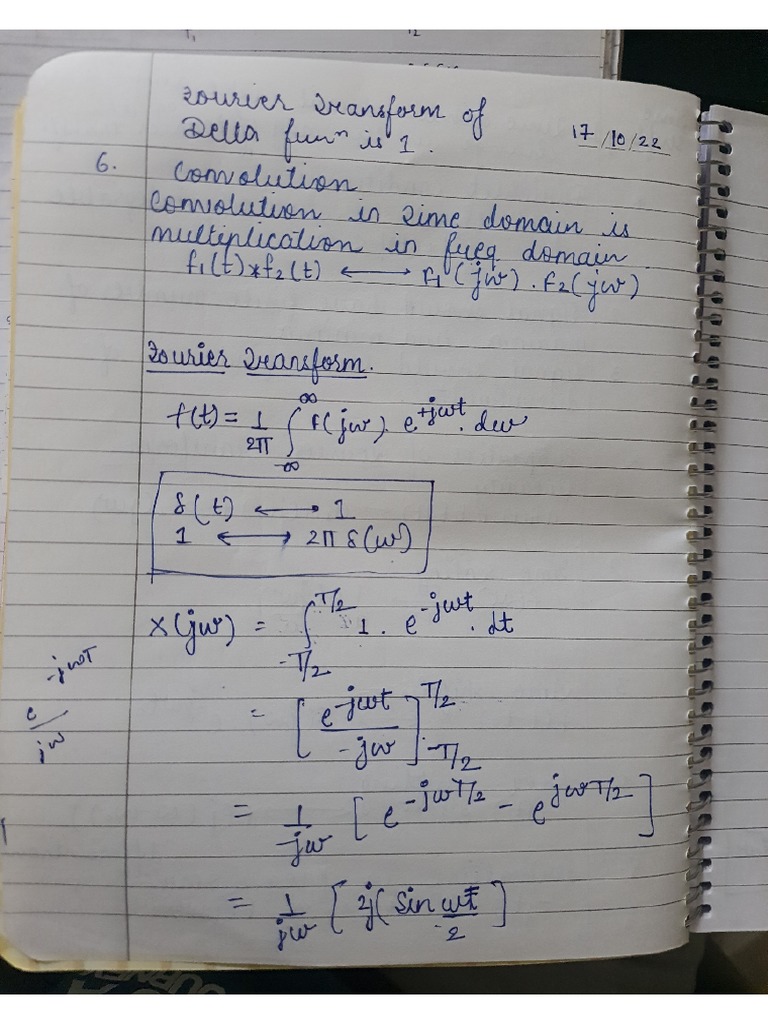 Fourier Transform of
Delta funⁿ is 1.
17/10/22
6. Convolution
Convolution in Time domain is
multiplication in freq domain.
f₁(t)*f₂(t) ⟷ F₁(jω).F₂(jω)
Fourier Transform.
f(t) = 1/2π ∫_{-∞}^{∞} F(jω). e^{+jωt}. dω
δ(t) ⟷ 1
1 ⟷ 2π δ(ω)
X(jω) = ∫_{-T/2}^{T/2} 1. e^{-jωt}. dt
= [e^{-jωt}/-jω]_{-T/2}^{T/2}
e^{-jωT}/jω
= 1/-jω [e^{-jωT/2} - e^{jωT/2}]
= 1/jω [2j(Sin ωT/2]